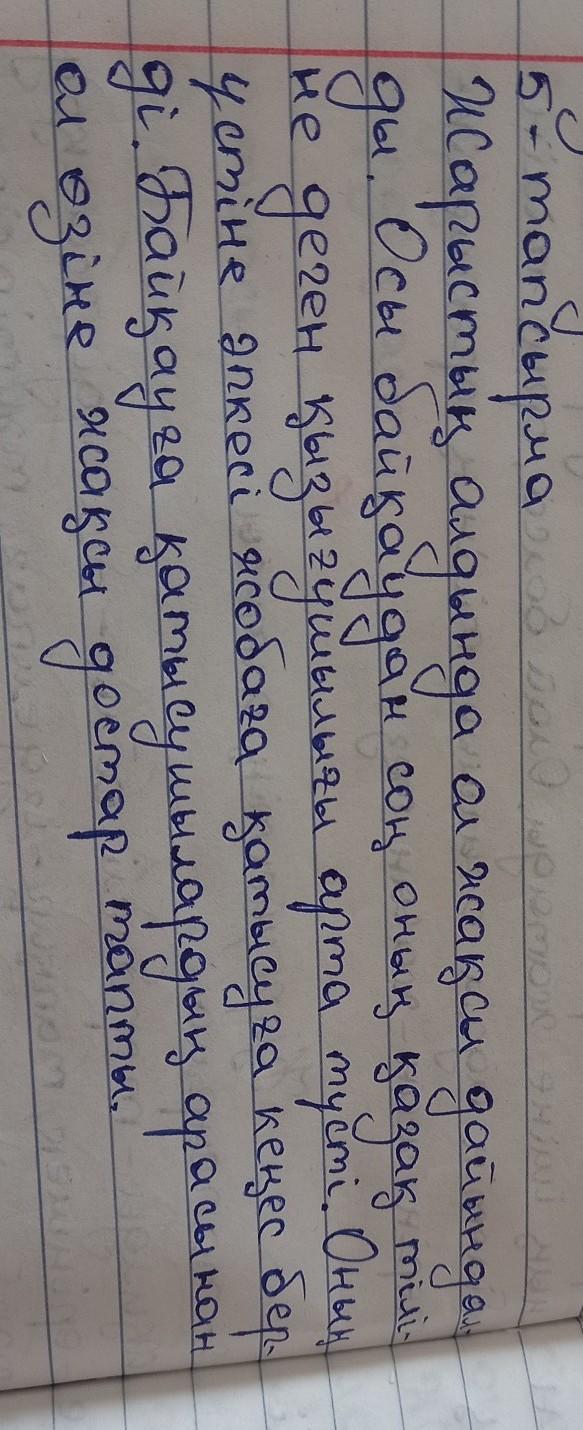 5-тапсырма
Жарыстың алдында ол жақсы дайындал-
ды. Осы байқаудан соң оның қазақ тілі-
не деген қызығушылығы арта түсті. Оның
үстіне әпкесі жобаға қатысуға кеңес бер-
ді. Байқауға қатысушылардың арасынан
ол өзіне жақсы достар тапты.